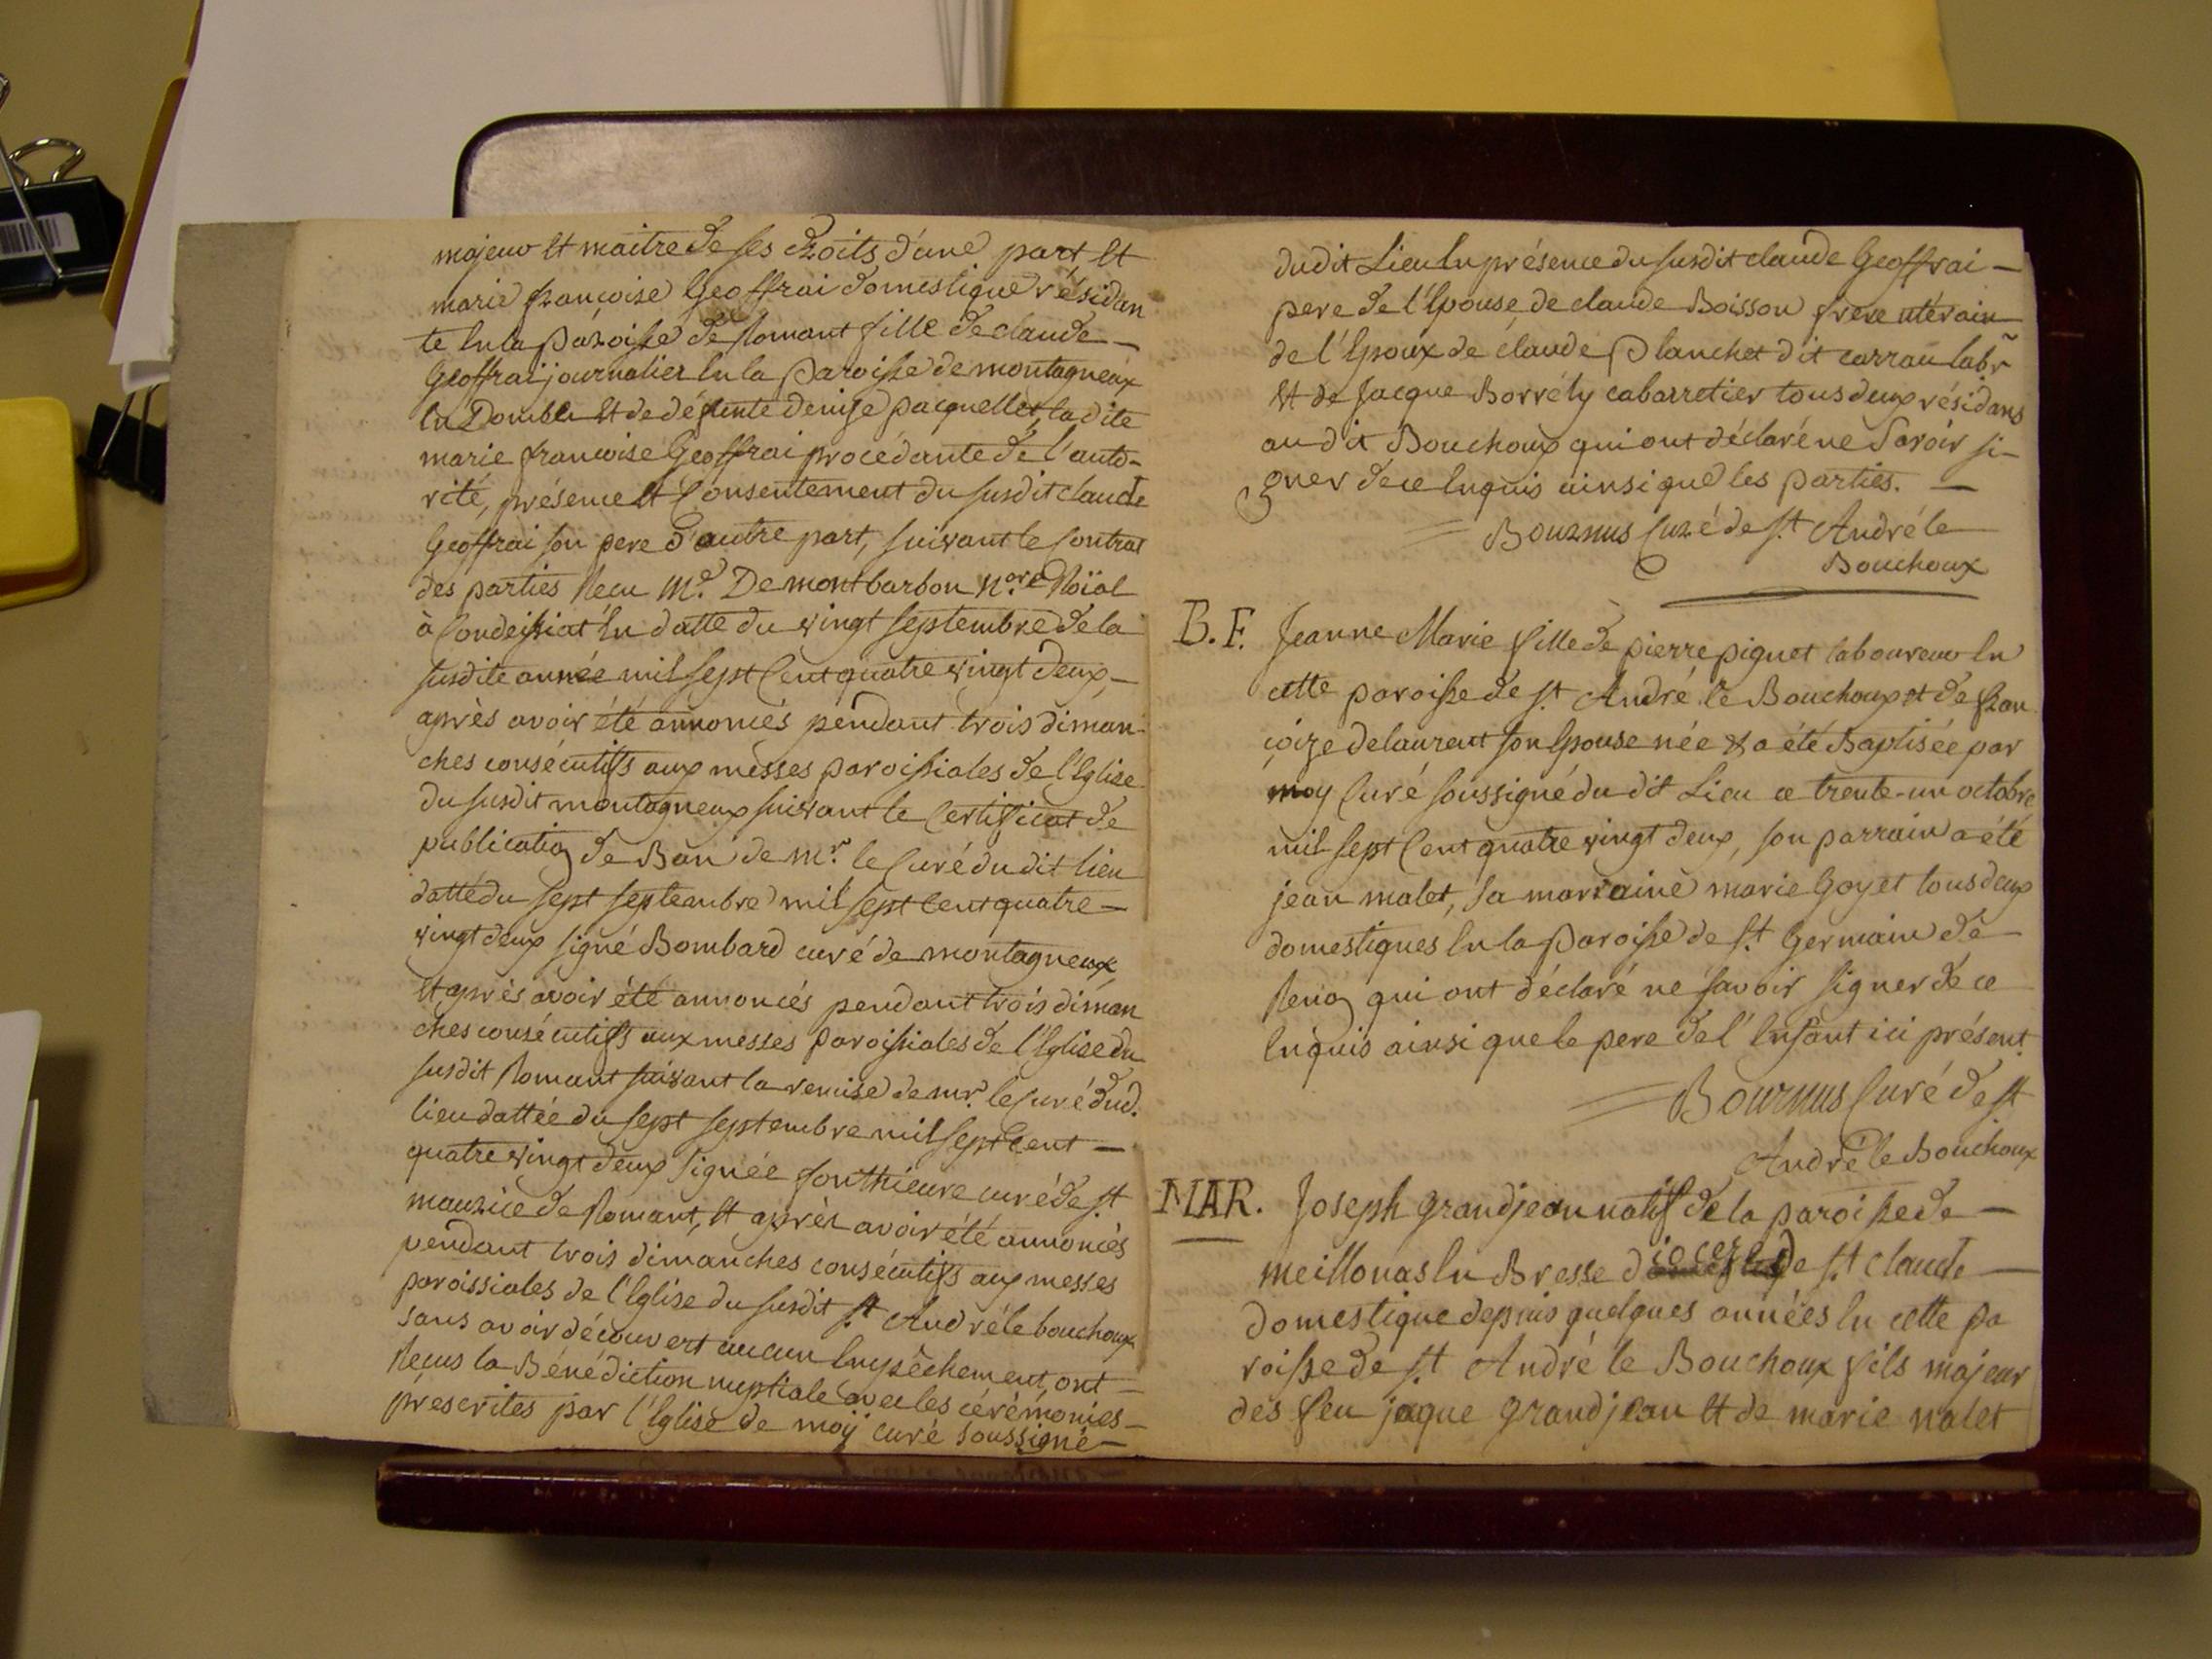 majeur et maitre de ses droits d'une part et
marie françoise Geoffrai domestique résidan
te en la paroisse de Romant fille de claude —
Geoffrai journalier en la paroisse de montagneux
en Dombe et de défunte denise pacquellet, la dite
marie françoise Geoffrai procédante de l'auto-
rité, présence et Consentement du susdit claude
Geoffrai son pere d'autre part, suivant le Contrat
des parties Recu Me. De montbarbon N.ore Roïal
à Condeissiat En datte du vingt septembre de la
susdite année mil sept Cent quatre vingt deux, —
après avoir été annoncés pendant trois diman-
ches consécutifs aux messes paroissiales de l'Eglise
du susdit montagneux suivant le Certificat de
publication de Ban de mr. le Curé du dit lieu
datté du sept septembre mil sept cent quatre —
vingt deux signé Bombard curé de montagneux,
et après avoir été annoncés pendant trois diman
ches consécutifs aux messes paroissiales de l'Eglise du
susdit Romant suivant la remise de mr. le Curé dud.
lieu dattée du sept septembre mil sept cent —
quatre vingt deux signée fonthieure curé de st
maurice de Romant, et après avoir été annoncés
pendant trois dimanches consécutifs aux messes
paroissiales de l'Eglise du susdit st André le bouchoux
sans avoir découvert aucun Empêchement, ont —
Recus la Bénédiction nuptiale avec les cérémonies —
prescrites par l'Eglise de moÿ curé soussigné —
dudit Lieu En présence du susdit claude Geoffrai —
pere de l'Epouse, de claude Boisson frere utérain
de l'Epoux de claude Planchet dit carrau labr
et de Jacque Borrély cabarretier tous deux résidans
au dit Bouchoux qui ont déclaré ne savoir si-
gner de ce Enquis ainsi que les parties. —
Bournus Curé de st. André le
Bouchoux
B.F. Jeanne Marie fille de pierre piguet laboureur En
cette paroisse de st André le Bouchoux et de fran
çoize delaurent son Epouse née & a été Baptisée par
moy Curé soussigné du dit Lieu ce trente-un octobre
mil sept Cent quatre vingt deux, son parrain a été
jean malet, sa marraine marie Goyet tous deux
domestiques En la paroisse de st Germain de
Renon qui ont déclaré ne savoir signer de ce
Enquis ainsi que le pere de l'Enfant ici présent.
Bournus Curé de st
André le Bouchoux
MAR. Joseph grandjean natif de la paroisse de —
meillonas En Bresse diocese de st claude —
domestique depuis quelques années En cette pa
roisse de st André le Bouchoux fils majeur
des feu jaque grandjean et de marie nalet